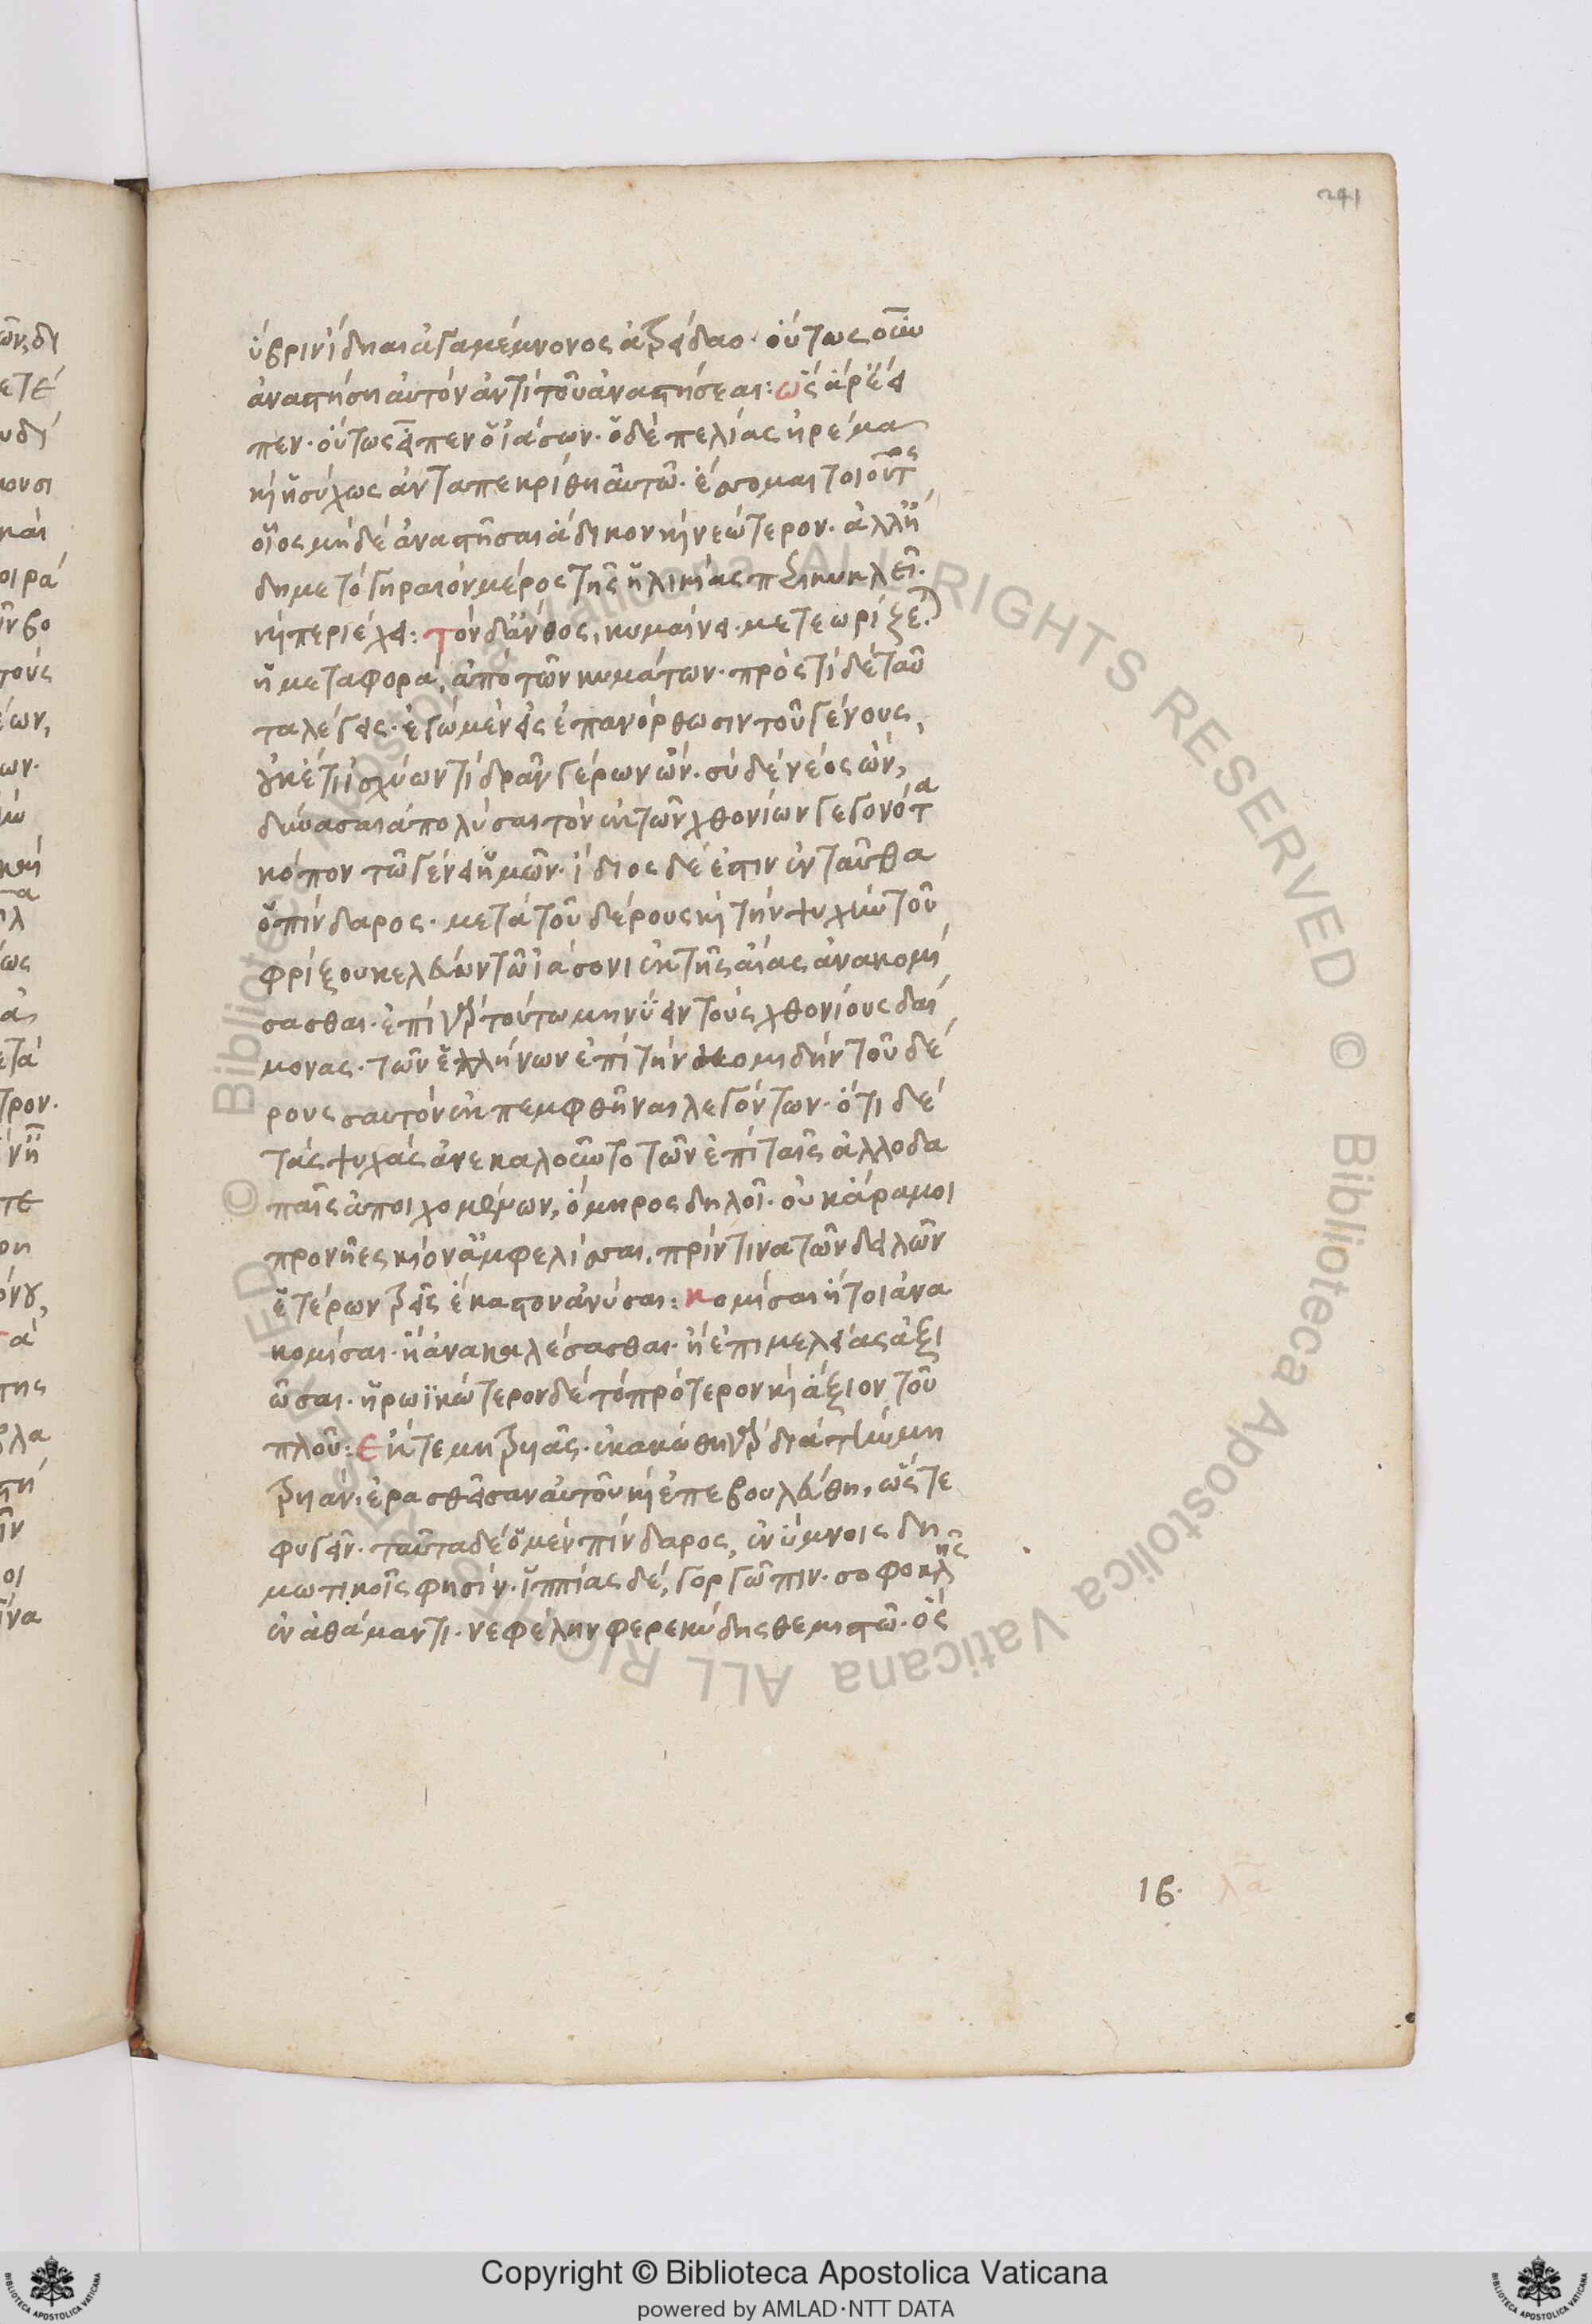 241
ὕβριν ἴδηαι ἀγαμέμνονος ἀτρείδαο· οὕτως οὖν
ἀναστήσῃ αὐτὸν ἀντὶ τοῦ ἀναστήσεαι: ὡς ἄρ ἔει
πεν· οὕτως εἶπεν ὁ ἰάσων· ὁ δὲ πελίας ἠρέμα
καὶ ἡσύχως ἀνταπεκρίθη αὐτῶ· ἔσομαι τοιοῦτος
οἷος μηδὲ ἀναστῆσαι ἄδικον καὶ νεώτερον· ἀλλ' ἤ
δη με τὸ γηραιὸν μέρος τῆς ἡλικίας περικυκλεῖ·
καὶ περιέχει: τὸν δ' ἄνθος, κυμαίνει· μετεωρίζεται·
ἡ μεταφορὰ, ἀπὸ τῶν κυμάτων· πρὸς τί δὲ ταῦ
τα λέγεις· ἐγὼ μὲν εἰς ἐπανόρθωσιν τοῦ γένους,
οὐκέτι ἰσχύων τί δρᾶν γέρων ὤν· σὺ δὲ νέος ὢν,
δύνασαι ἀπολύσαι τὸν ἐκ τῶν χθονίων γεγονότα
κόπον τῶ γένει ἡμῶν· ἴδιος δέ ἐστιν ἐνταῦθα
ὁ πίνδαρος· μετὰ τοῦ δέρους καὶ τὴν ψυχὴν τοῦ
φρίξου κελεύων τῶ ἰάσονι ἐκ τῆς αἴας ἀνακομί
σασθαι· ἐπὶ γὰρ τούτω μηνίειν τοὺς χθονίους δαί
μονας· τῶν ἑλλήνων ἐπὶ τὴν κομιδὴν τοῦ δέ
ρους αυτὸν ἐκπεμφθῆναι λεγόντων· ὅτι δὲ
τὰς ψυχὰς ἀνεκαλοῦντο τῶν ἐπὶ ταῖς ἀλλοδα
παῖς ἀποιχομένων, ὅμηρος δηλοῖ· οὐκ ἄρα μοι
προ νῆες κίον ἀμφιέλισσαι, πρίν τινα τῶν δειλῶν
ἑτέρων τρεῖς ἕκαστον ἀνύσαι: κομίσαι ἤτοι ἀνα
κομίσαι· ἢ ἀνακαλέσασθαι· ἢ ἐπιμελείας ἀξι
ῶσαι· ἡρωϊκώτερον δὲ τὸ πρότερον καὶ ἄξιον τοῦ
πλοῦ: ἔκ τε μητρυιᾶς· ἐκακώθη γὰρ διὰ τὴν μη
τρυιὰν, ἐρασθεῖσαν αὐτοῦ καὶ ἐπεβουλεύθη, ὥστε
φυγεῖν· ταύτα δὲ ὁ μὲν πίνδαρος, ἐν ὕμνοις δη
μωτικοῖς φησίν· ἱππίας δὲ, γοργῶπιν· σοφοκλῆς
ἐν ἀθάμαντι· νεφέλην φερεκύδης θεμιστῶ· ὃς
ιβ·
λα
Copyright © Biblioteca Apostolica Vaticana
powered by AMLAD·NTT DATA